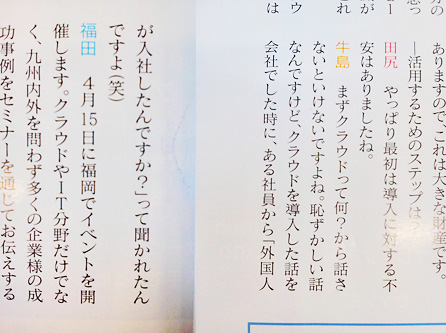 ありますので、これは大きな財産です。
―活用するためのステップは？
田尻　やっぱり最初は導入に対する不
安はありましたね。
牛島　まずクラウドって何？から話さ
ないといけないですよね。恥ずかしい話
なんですけど、クラウドを導入した話を
会社でした時に、ある社員から「外国人
が入社したんですか？」って聞かれたん
ですよ(笑)
福田　４月15日に福岡でイベントを開
催します。クラウドやIT分野だけでな
く、九州内外を問わず多くの企業様の成
功事例をセミナーを通じてお伝えする